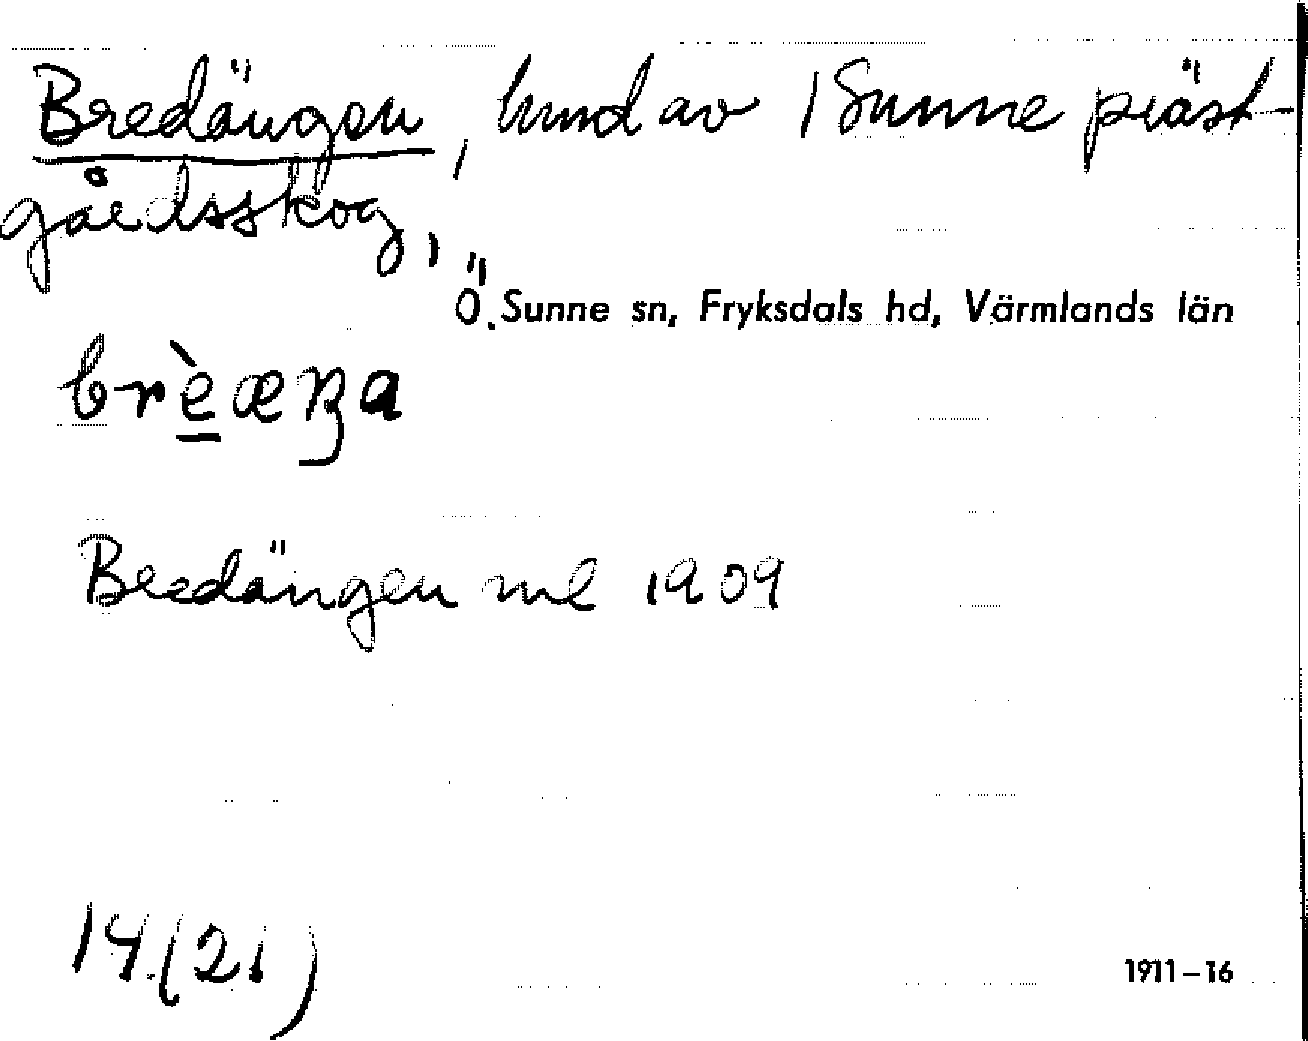 Bredängen, hmd av 1 Sunne präst-
gårdsskog,
Ö. Sunne sn, Fryksdals hd, Värmlands län
Bredängen ml 1909
14 (21)
1911–16